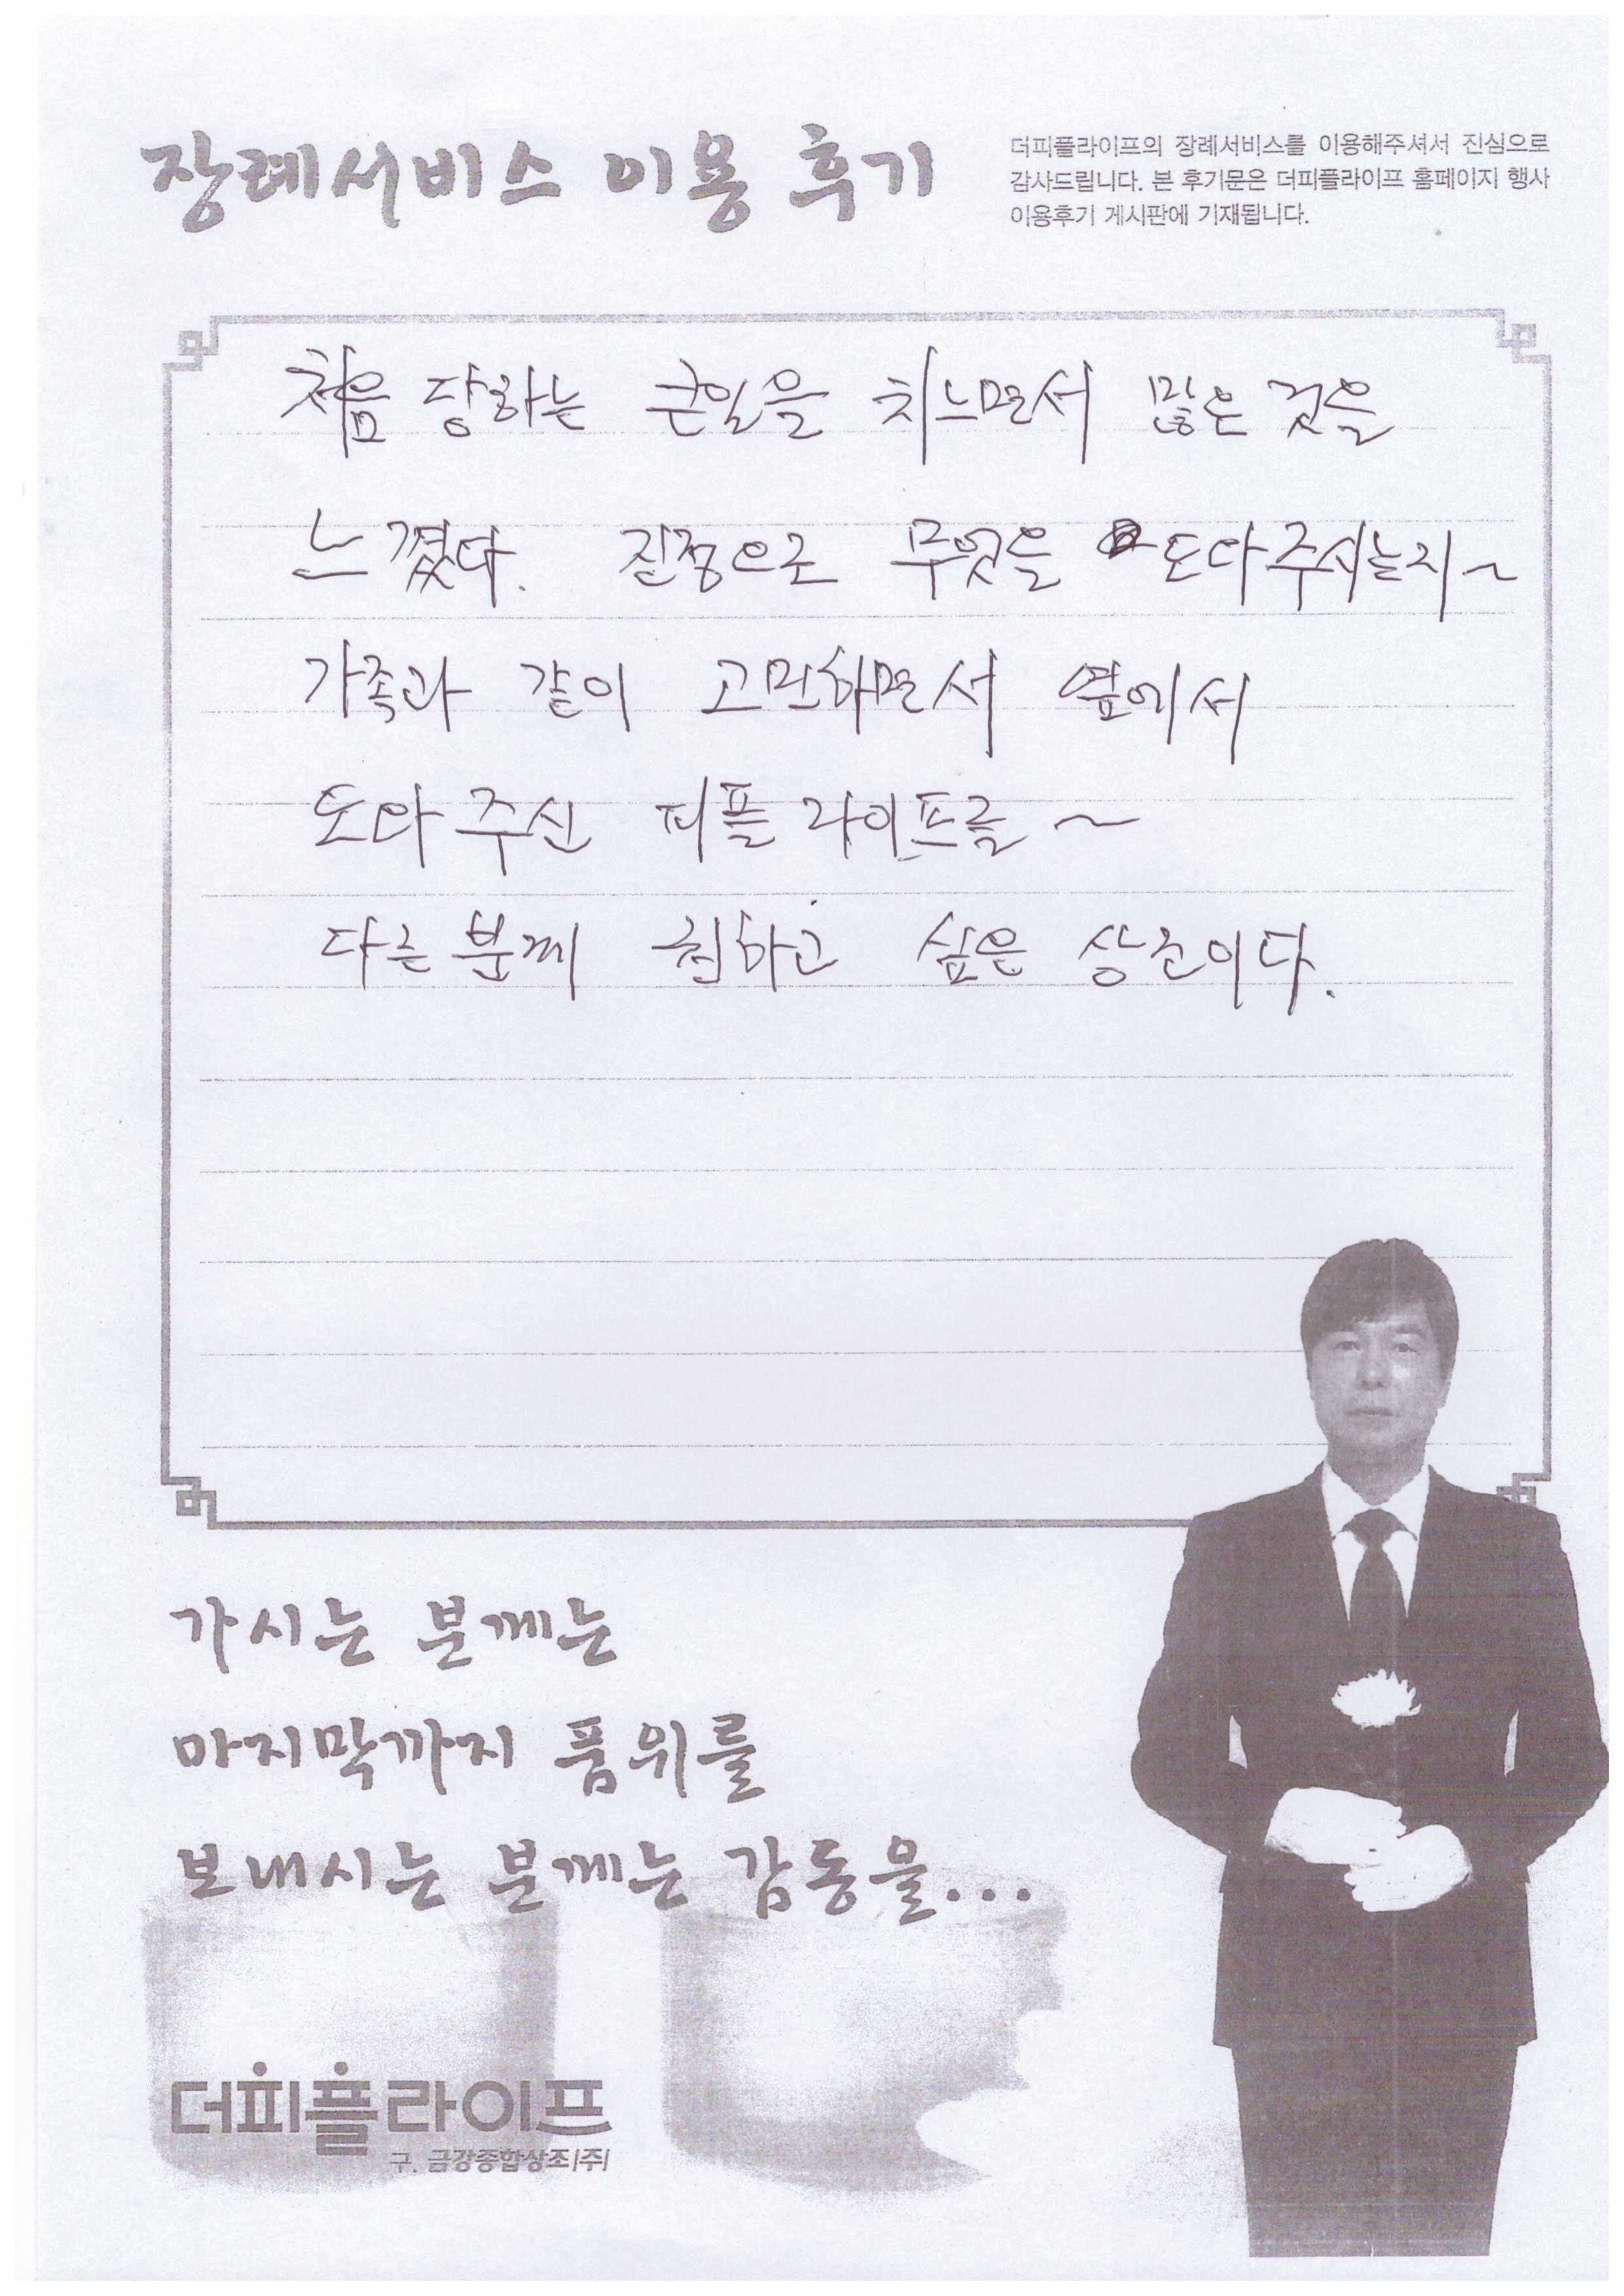 장례서비스 이용 후기
더피플라이프의 장례서비스를 이용해주셔서 진심으로
감사드립니다. 본 후기문은 더피플라이프 홈페이지 행사
이용후기 게시판에 기재됩니다.
처음 당하는 큰일을 치느면서 많은 것을
느꼈다. 진정으로 무엇을 도와주시는지~
가족과 같이 고민하면서 옆에서
도와 주신 피플 라이프를 ~
다른 분께 권하고 싶은 상조이다.
가시는 분께는
마지막까지 품위를
보내시는 분께는 감동을...
더피플라이프
구. 금강종합상조(주)